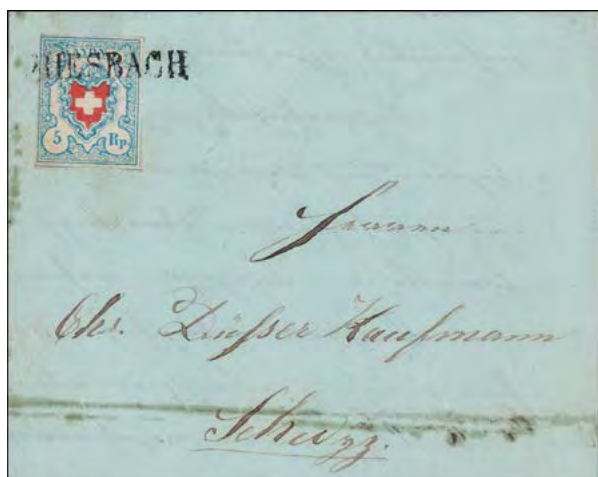 RIESBACH
5 Rp
Herrn
Chr. Kaufmann
Schwyz.